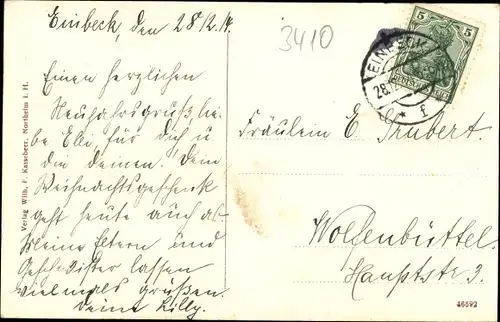 Einbeck, den 28/12.14.
3410
Einen herzlichen
Neujahrsgruß, lie-
be Elli, für dich u.
die deinen. Dein
Weihnachtsgeschenk
geht heute auch ab.
Meine Eltern und
Geschwister lassen
vielmals grüßen.
Deine Lilly.
5 5
DEUTSCHES REICH
EINBECK
28.12
* f
Fräulein E. Trubert.
Wolfenbüttel.
Hauptstr 3.
Verlag Wilh. F. Kasscheer, Northeim i. H.
46592